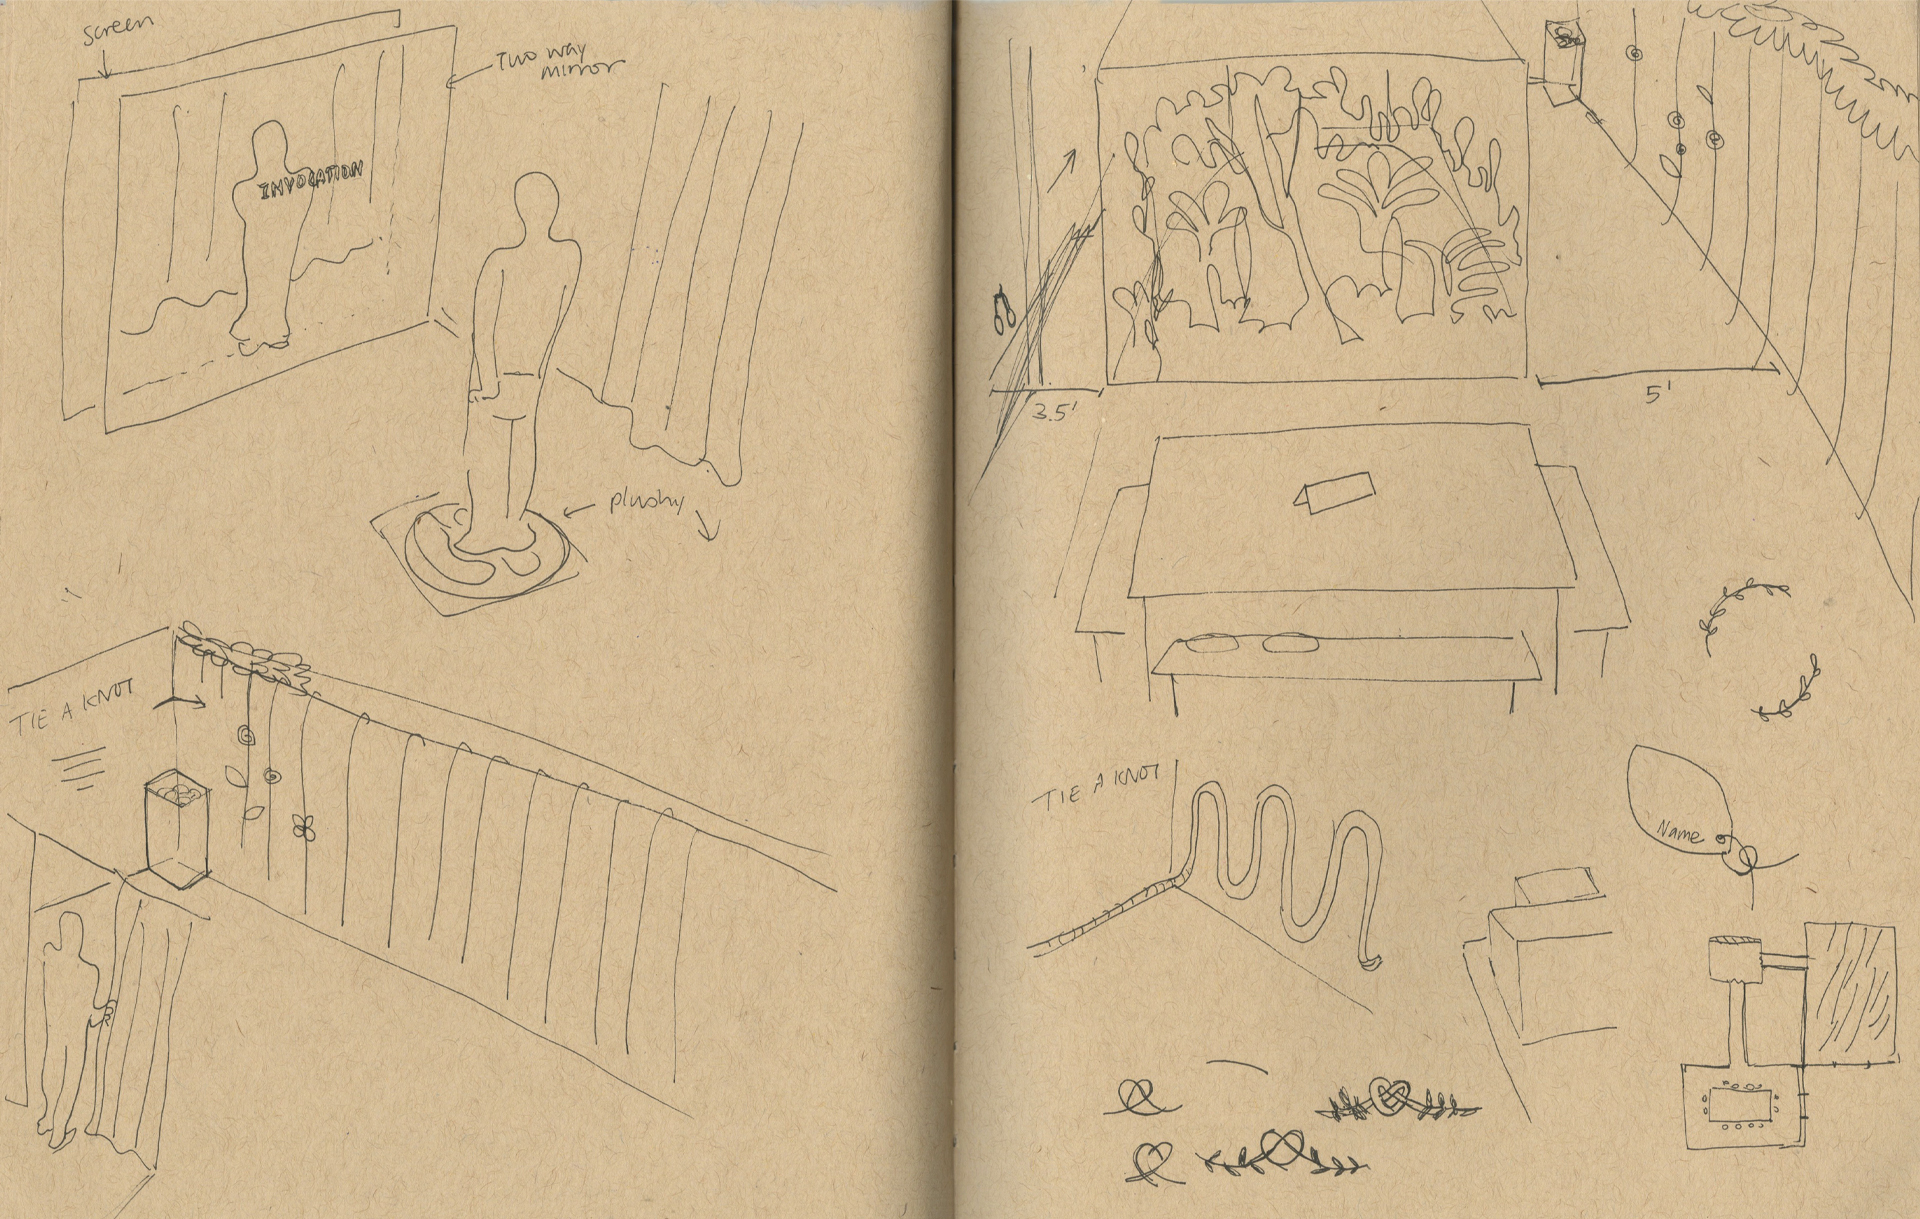 screen
Two way
mirror
INVOCATION
plushy
TIE A KNOT
3.5'
5'
TIE A KNOT
Name